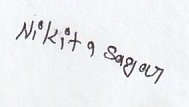 Nikita Sagar